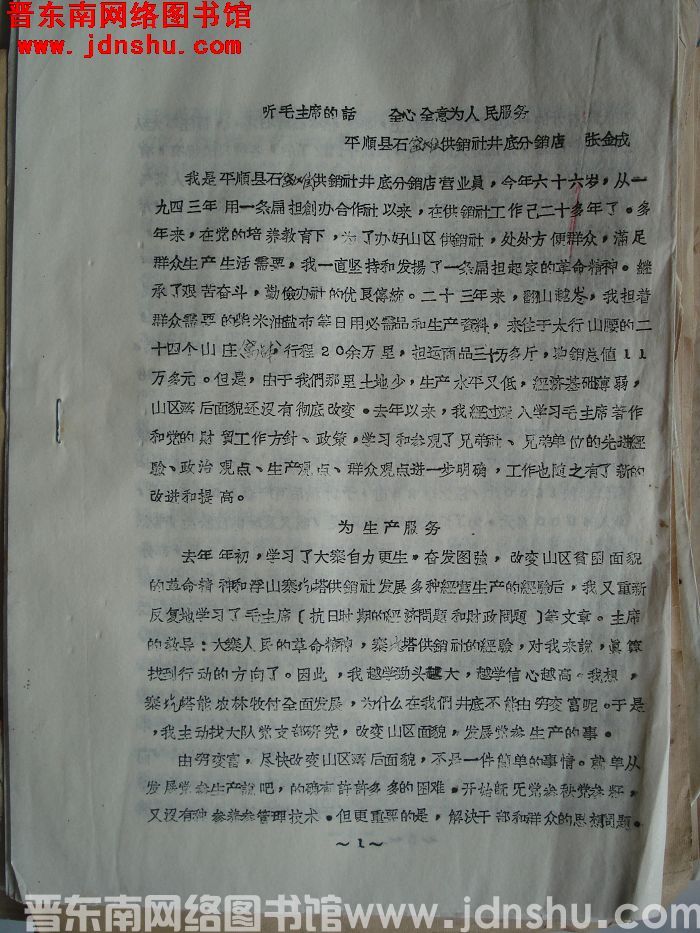 晋东南网络图书馆
www.jdnshu.com
听毛主席的話 全心全意为人民服务
平順县石窰滩供銷社井底分銷店 张金成
我是平順县石窰滩供銷社井底分銷店营业員，今年六十六岁，从一
九四三年用一条扁担創办合作社以来，在供銷社工作已二十多年了。多
年来，在党的培养教育下，为了办好山区供銷社，处处方便群众，滿足
群众生产生活需要，我一直坚持和发揚了一条扁担起家的革命精神。継
承了艰苦奋斗，勤儉办社的优良傳統。二十三年来，翻山越岺，我担着
群众需要的柴米油盐布等日用必需品和生产資料，来往于太行山腰的二
十四个山庄 行程２０余万里，担运商品三十万多斤，購銷总值１１
万多元。但是，由于我們那里土地少，生产水平又低，經济基础薄弱，
山区落后面貌还沒有彻底改变。去年以来，我經过深入学习毛主席著作
和党的財貿工作方針、政策，学习和参观了兄弟社、兄弟单位的先進經
驗、政治观点、生产观点、群众观点進一步明确，工作也随之有了新的
改進和提高。
为生产服务
去年年初，学习了大寨自力更生。奋发图強，改变山区貧困面貌
的革命精神和浮山寨圪塔供銷社发展多种經营生产的經驗后，我又重新
反复地学习了毛主席〔抗日时期的經济問題和財政問題〕等文章。主席
的教导：大寨人民的革命精神，寨圪塔供銷社的經驗，对我来說，眞算
找到行动的方向了。因此，我越学劲头越大，越学信心越高。我想，
寨圪塔能农林牧付全面发展，为什么在我們井底不能由穷变富呢。于是
，我主动找大队党支部研究，改变山区面貌，发展党参生产的事。
由穷变富，尽快改变山区落后面貌，不是一件簡单的事情。就单从
发展党参生产說吧，的确有許許多多的困难。开始旣无党参秧党参籽，
又沒有种参养参管理技术。但更重要的是，解决干部和群众的思想問題。
～１～
晋东南网络图书馆 www.jdnshu.com